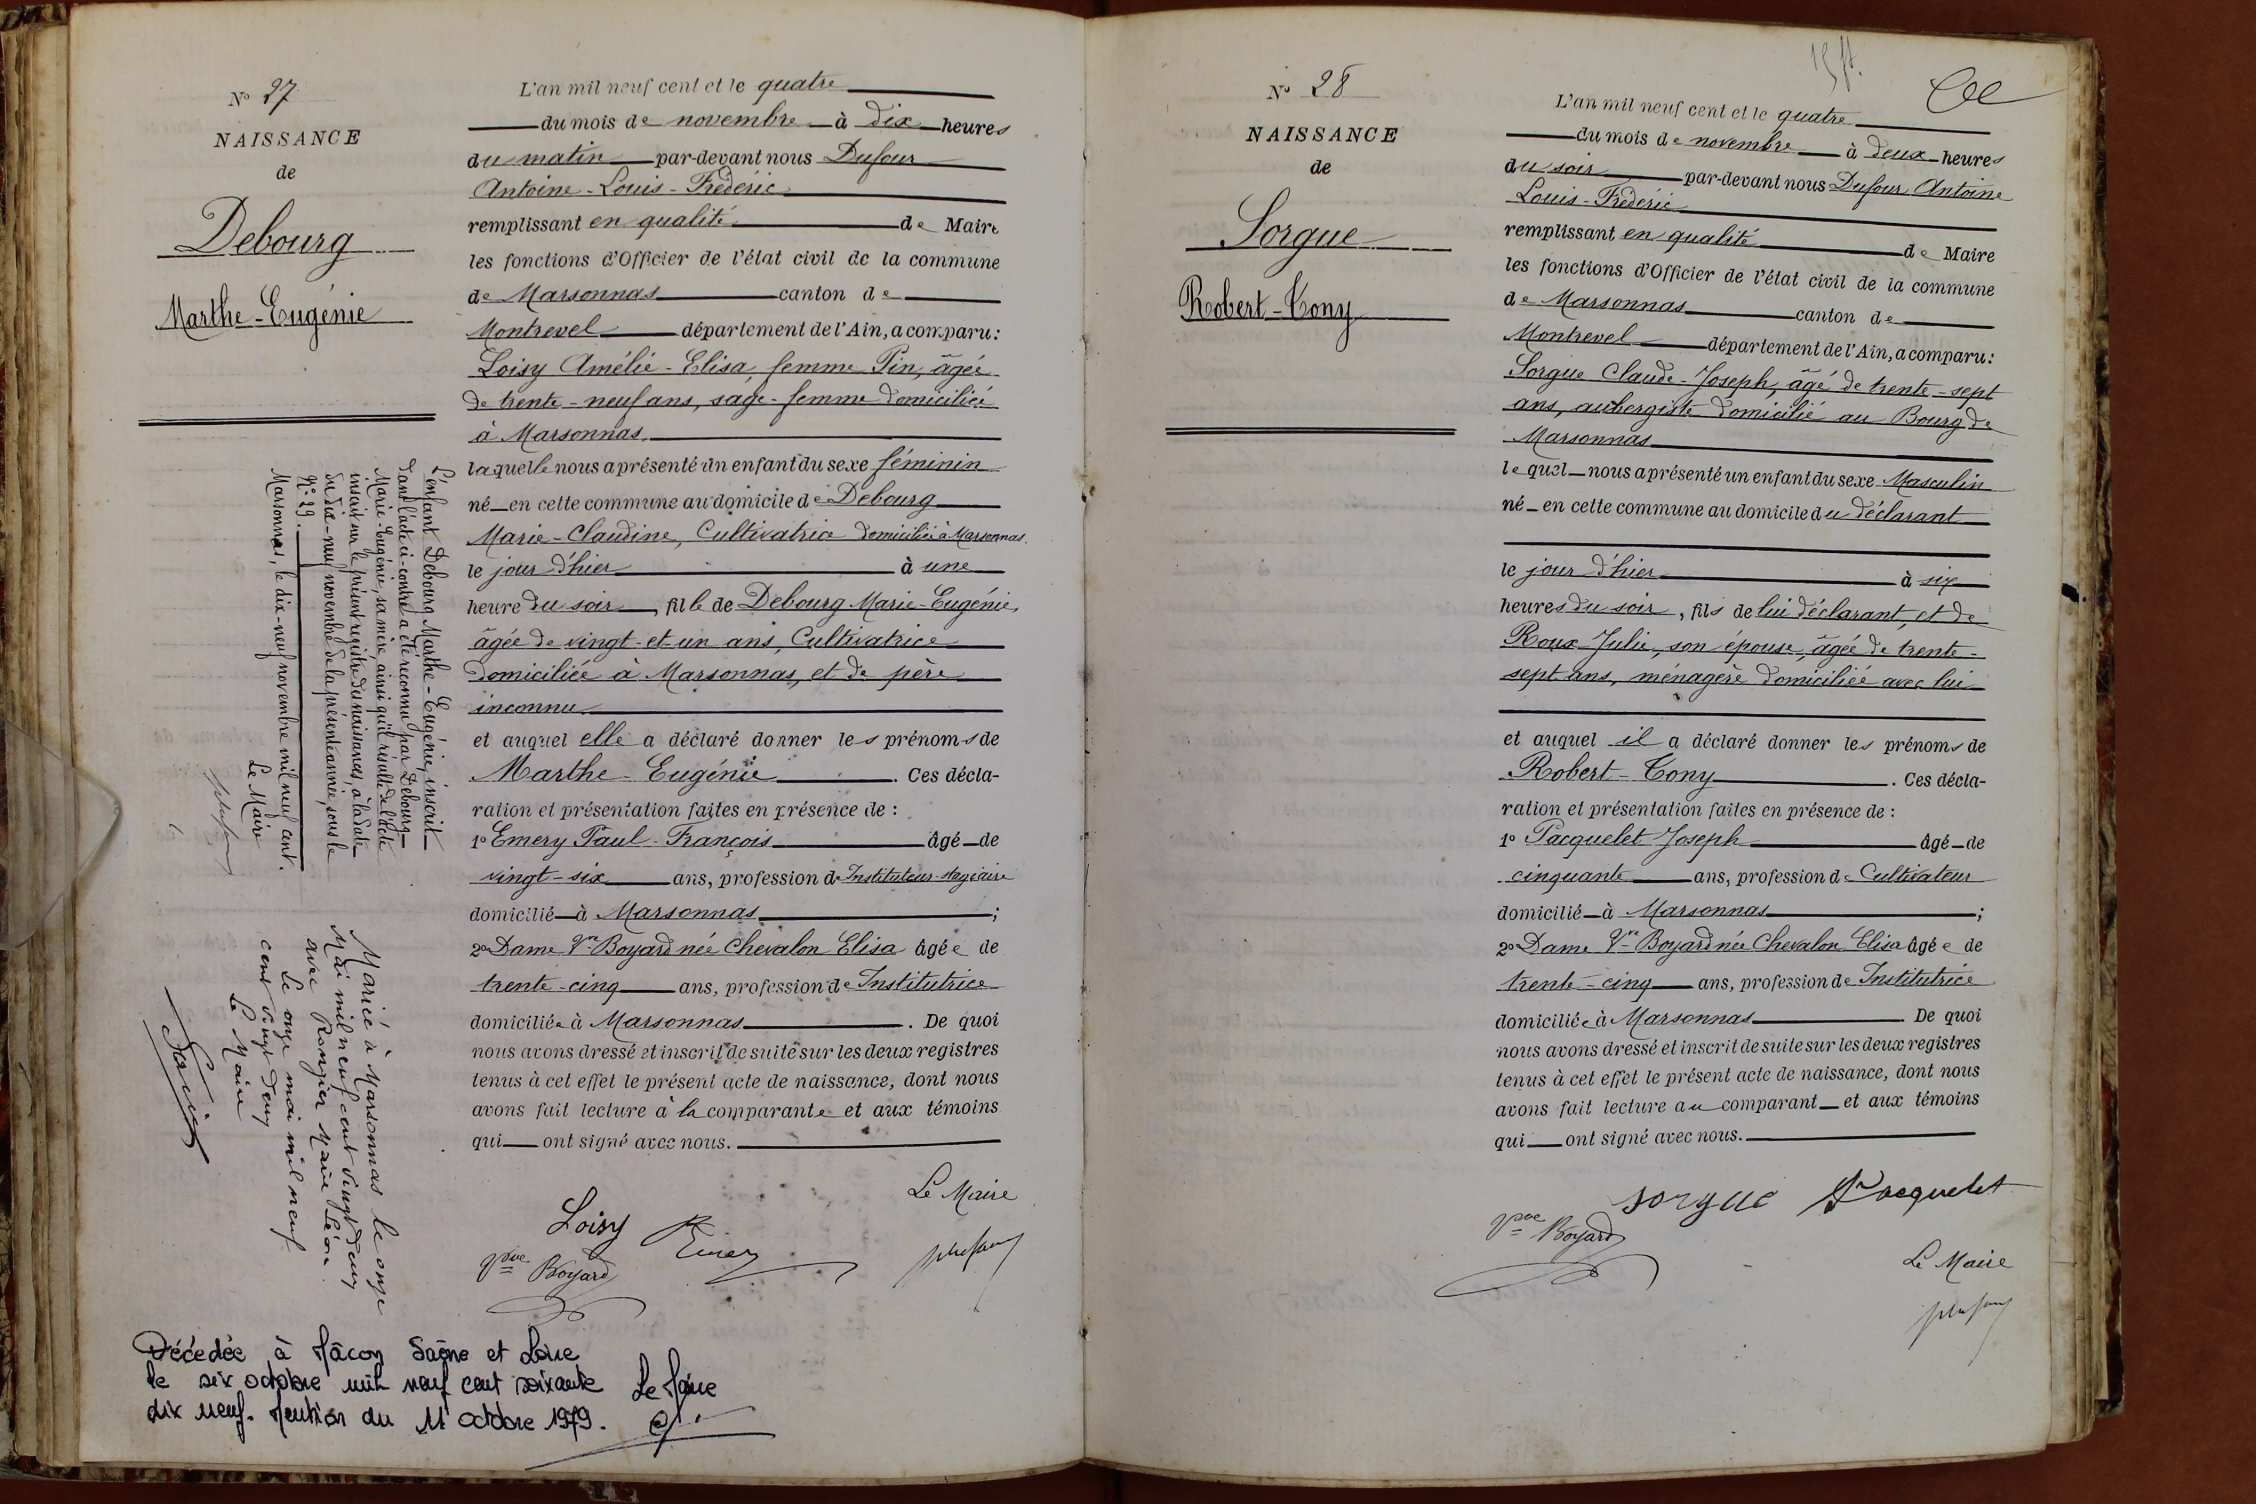 N° 27
NAISSANCE
de
Debourg
Marthe-Eugénie
L'an mil neuf cent et le quatre
du mois de novembre à dix heures
du matin par-devant nous Dufour
Antoine-Louis-Frédéric
remplissant en qualité de Maire
les fonctions d'Officier de l'état civil de la commune
de Marsonnas canton de
Montrevel département de l'Ain, a comparu:
Loisy Amélie-Elisa, femme Pin, âgée
de trente-neuf ans, sage-femme domiciliée
à Marsonnas
laquelle nous a présenté un enfant du sexe féminin
né en cette commune au domicile de Debourg
Marie-Claudine, Cultivatrice domiciliée à Marsonnas
le jour d'hier à une
heure du soir, fille de Debourg Marie-Eugénie,
âgée de vingt-et-un ans, Cultivatrice
domiciliée à Marsonnas, et de père
inconnu
et auquel elle a déclaré donner les prénoms de
Marthe-Eugénie. Ces décla-
ration et présentation faites en présence de :
1° Emery Paul-François âgé de
vingt-six ans, profession de Instituteur stagiaire
domicilié à Marsonnas ;
2° Dame Vve Boyard née Chevalon Elisa âgée de
trente-cinq ans, profession de Institutrice
domiciliée à Marsonnas. De quoi
nous avons dressé et inscrit de suite sur les deux registres
tenus à cet effet le présent acte de naissance, dont nous
avons fait lecture à la comparante et aux témoins
qui ont signé avec nous.
Le Maire
Loisy
Vve Boyard
L'enfant Debourg Marthe-Eugénie, inscrit
dans l'acte ci-contre a été reconnu par Debourg
Marie-Eugénie, sa mère, ainsi qu'il résulte de l'acte
inscrit sur le présent registre des naissances, à la date
du dix-neuf novembre de la présente année, sous le
N° 29.
Marsonnas, le dix-neuf novembre mil neuf cent.
Le Maire
Mariée à Marsonnas le onze
Mai mil neuf cent vingt deux
avec Rongier Marie Léon
Le onze mai mil neuf
cent vingt deux
Le Maire
Décédée à Mâcon Saône et Loire
le six octobre mil neuf cent soixante
dix neuf. Mention du 11 octobre 1979.
Le Maire
N° 28
NAISSANCE
de
Sorgue
Robert-Tony
L'an mil neuf cent et le quatre
du mois de novembre à deux heures
du soir par-devant nous Dufour Antoine
Louis-Frédéric
remplissant en qualité de Maire
les fonctions d'Officier de l'état civil de la commune
de Marsonnas canton de
Montrevel département de l'Ain, a comparu:
Sorgue Claude-Joseph, âgé de trente-sept
ans, aubergiste domicilié au Bourg de
Marsonnas
lequel nous a présenté un enfant du sexe Masculin
né en cette commune au domicile du déclarant
le jour d'hier à six
heures du soir, fils de lui déclarant, et de
Roux Julie, son épouse, âgée de trente-
sept ans, ménagère domiciliée avec lui
et auquel il a déclaré donner les prénoms de
Robert-Tony. Ces décla-
ration et présentation faites en présence de :
1° Pacquelet Joseph âgé de
cinquante ans, profession de Cultivateur
domicilié à Marsonnas ;
2° Dame Vve Boyard née Chevalon Elisa âgée de
trente-cinq ans, profession de Institutrice
domiciliée à Marsonnas De quoi
nous avons dressé et inscrit de suite sur les deux registres
tenus à cet effet le présent acte de naissance, dont nous
avons fait lecture au comparant et aux témoins
qui ont signé avec nous.
sorgue Pacquelet
Vve Boyard
Le Maire